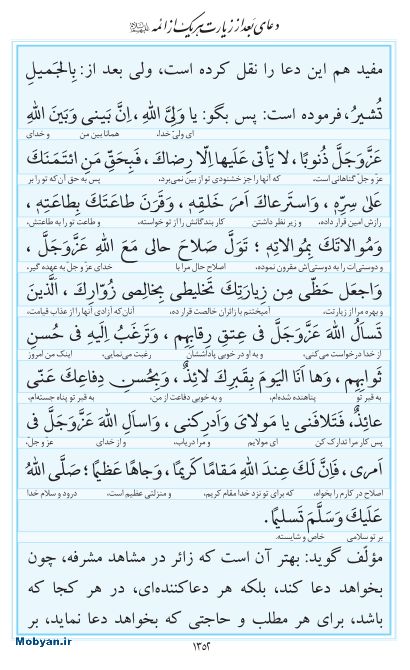 دعای بعد از زیارت هر یک از ائمه علیهم‌السلام
مفید هم این دعا را نقل کرده است، ولی بعد از: بِالجَمیلِ
تُشیرُ، فرموده است: پس بگو: یا وَلِیَّ اللهِ ، اِنَّ بَینی وَبَینَ اللهِ
ای ولیّ خدا، همانا بین من و خدای
عَزَّوَجَلَّ ذُنوبًا ، لا یَأتی عَلَیها اِلّا رِضاكَ ، فَبِحَقِّ مَنِ ائتَمَنَكَ
عزّ وجلّ گناهانی است، که آنها را جز خشنودی تو از بین نمی‌برد، پس به حق آن‌که تو را بر
عَلیٰ سِرِّهٖ ، وَاستَرعاكَ اَمرَ خَلقِهٖ ، وَقَرَنَ طاعَتَكَ بِطاعَتِهٖ ،
رازش امین قرار داده، و زیر نظر داشتن کار بندگانش را از تو خواسته، و طاعت تو را به طاعتش،
وَمُوالاتَكَ بِمُوالاتِهٖ ؛ تَوَلَّ صَلاحَ حالی مَعَ اللهِ عَزَّوَجَلَّ ،
و دوستی‌ات را به دوستی‌اش مقرون نموده، اصلاح حال مرا با خدای عزّ وجلّ به عهده گیر،
وَاجعَل حَظّی مِن زِیارَتِكَ تَخلیطی بِخالِصی زُوّارِكَ ، الَّذینَ
و بهره مرا از زیارتت، آمیختنم با زائران خالصت قرار ده، آنان‌که آزادی آنها را از عذاب قیامت،
تَسأَلُ اللهَ عَزَّوَجَلَّ فی عِتقِ رِقابِهِم ، وَتَرغَبُ اِلَیهِ فی حُسنِ
از خدا درخواست می‌کنی، و به او در خوبی پاداششان رغبت می‌نمایی، اینک من امروز
ثَوابِهِم ، وَها اَنَا الیَومَ بِقَبرِكَ لائِذٌ ، وَبِحُسنِ دِفاعِكَ عَنّی
به قبر تو پناهنده شده‌ام، و به خوبی دفاعت از من، به قبر تو پناه جسته‌ام،
عائِذٌ ، فَتَلافَنی یا مَولایَ وَاَدرِکنی ، وَاسأَلِ اللهَ عَزَّوَجَلَّ فی
پس کار مرا تدارک کن ای مولایم و مرا دریاب، و از خدای عزّ و جلّ،
اَمری ، فَاِنَّ لَكَ عِندَ اللهِ مَقامًا کَریمًا ، وَجاهًا عَظیمًا ؛ صَلَّی اللهُ
اصلاح در کارم را بخواه، که برای تو نزد خدا مقام کریم، و منزلتی عظیم است، درود و سلام خدا
عَلَیكَ وَسَلَّمَ تَسلیمًا.
بر تو سلامی خاص و شایسته.
مؤلّف گوید: بهتر آن است که زائر در مشاهد مشرفه، چون
بخواهد دعا کند، بلکه هر دعاکننده‌ای، در هر کجا که
باشد، برای هر مطلب و حاجتی که بخواهد دعا نماید، بر
Mobyan.ir
۱۳۵۲